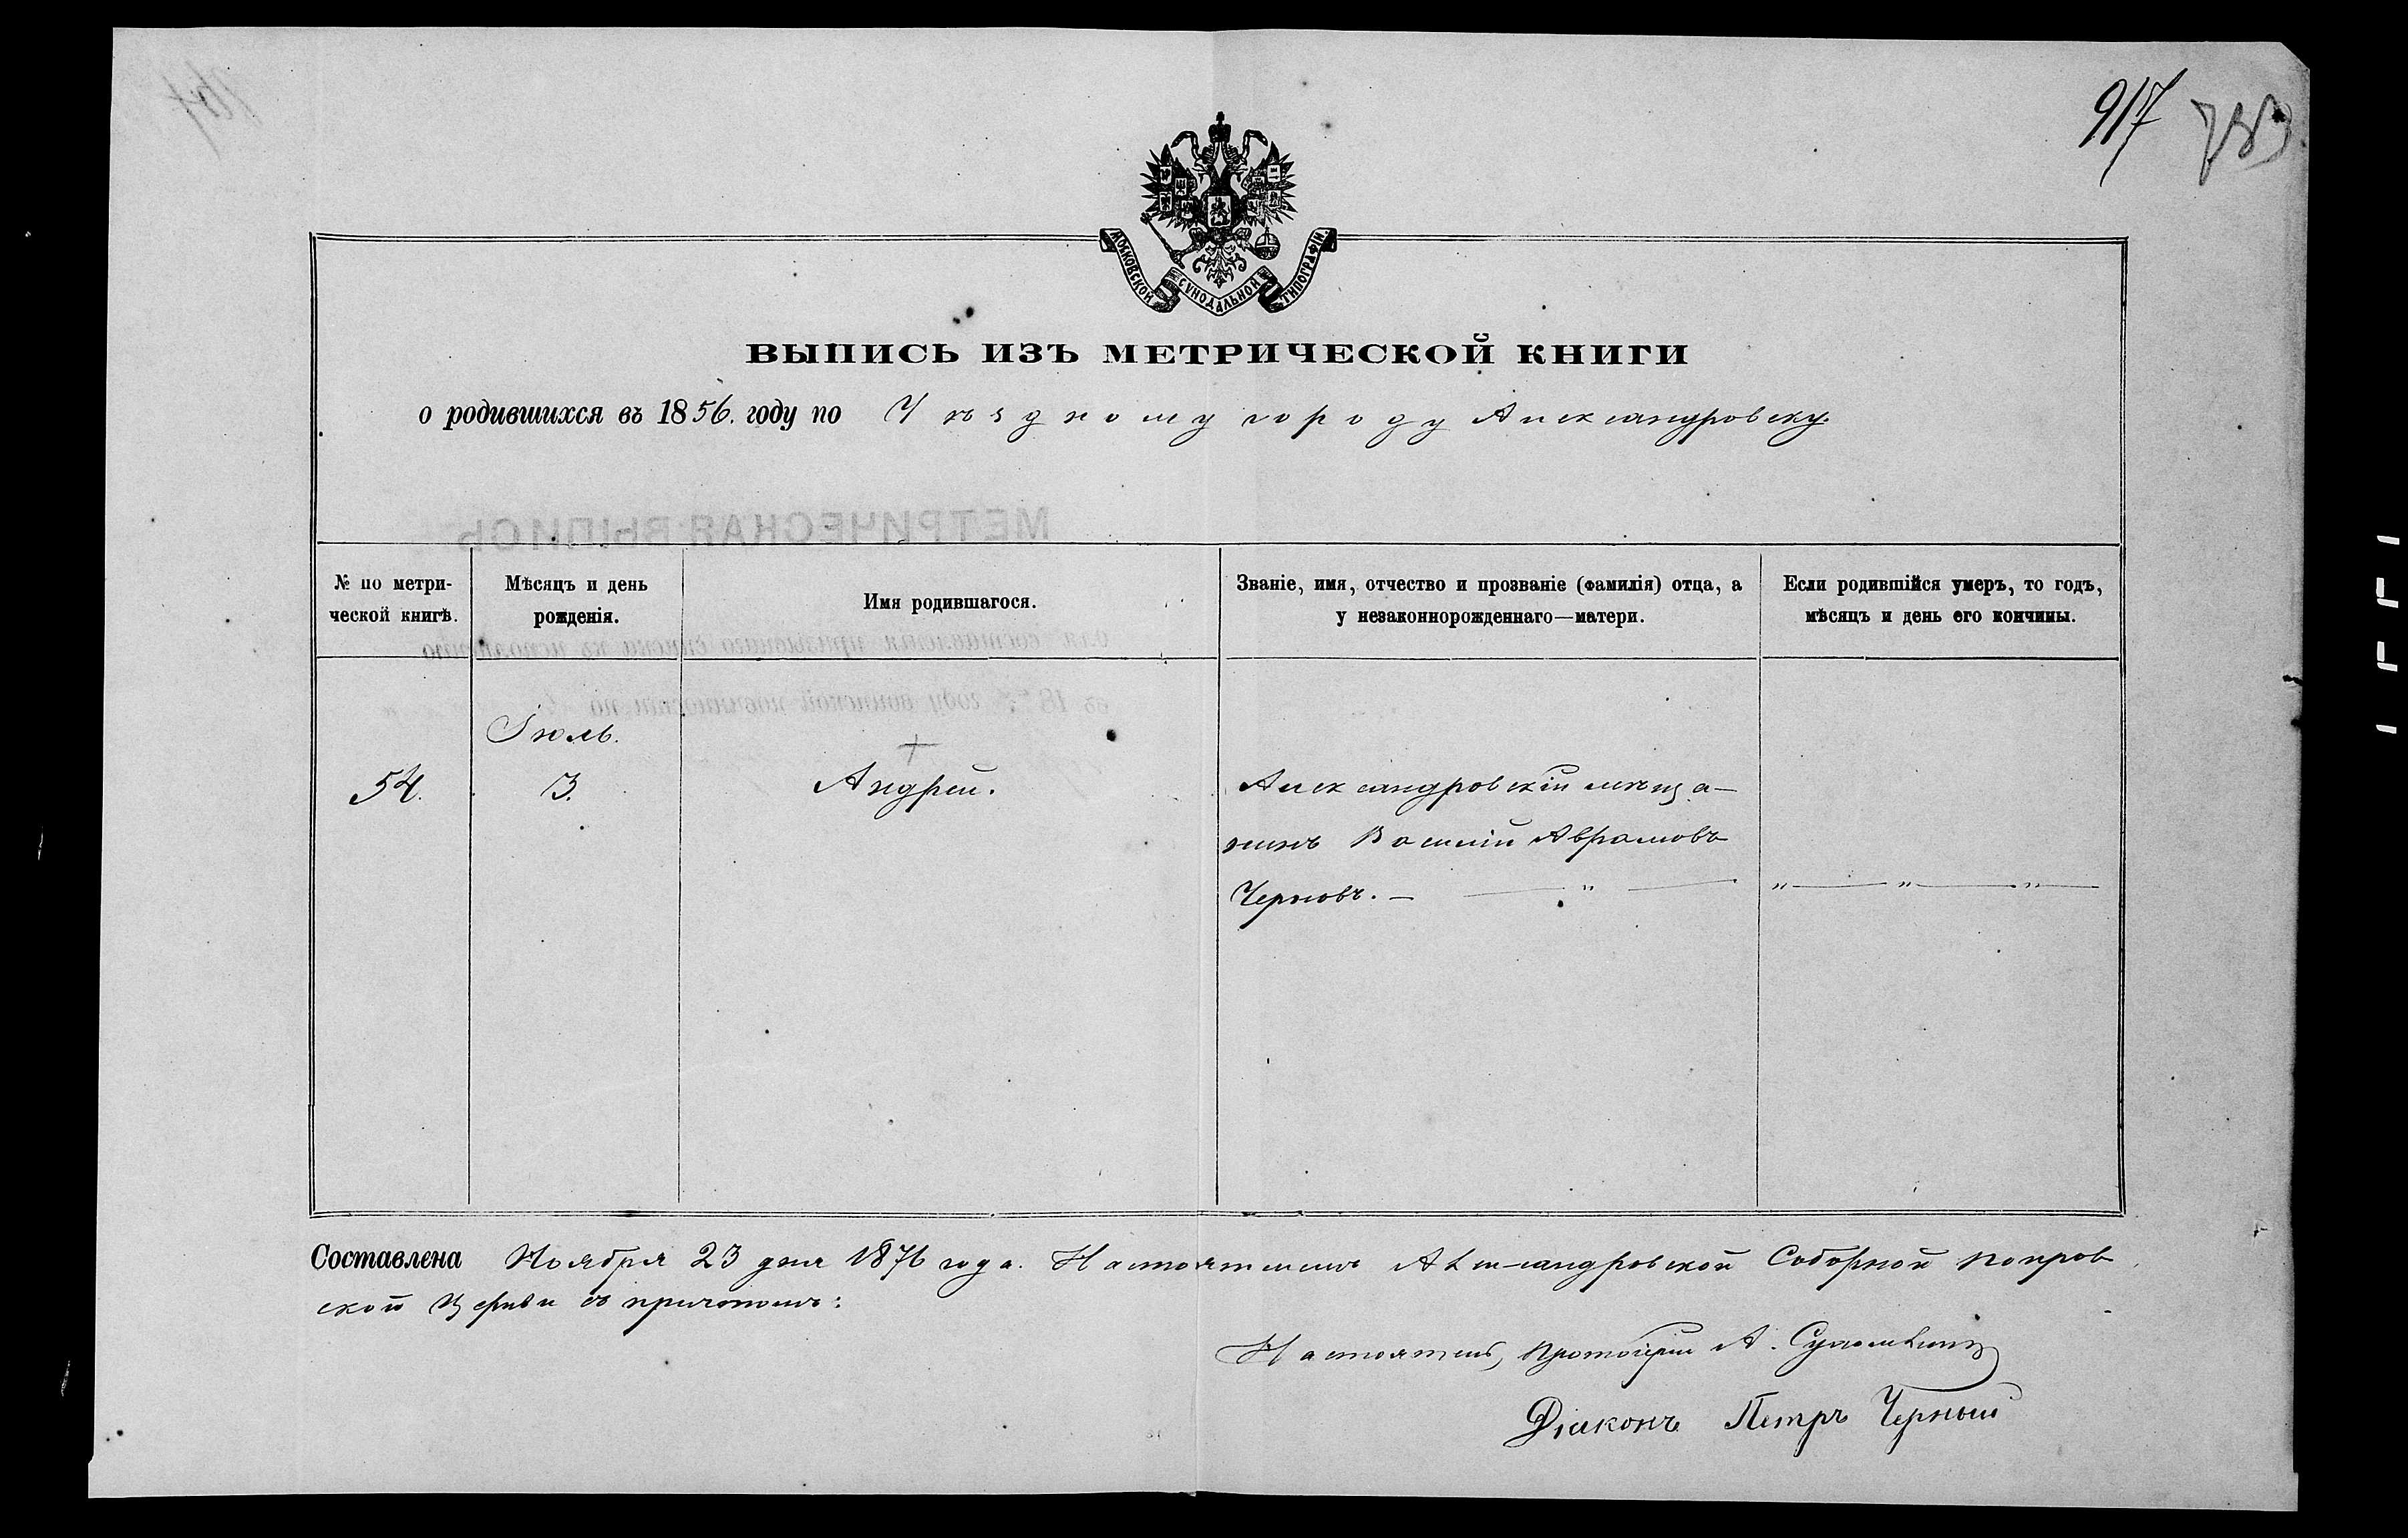 917 783
МОСКОВСКОЙ СѴНОДАЛЬНОЙ ТИПОГРАФІИ.
ВЫПИСЬ ИЗЪ МЕТРИЧЕСКОЙ КНИГИ
о родившихся въ 1856. году по Уѣздному городу Александровску.
МЕТРИЧЕСКАЯ ВЫПИСЬ
№ по метри-
ческой книгѣ.
Мѣсяцъ и день
рожденія.
Имя родившагося.
Званіе, имя, отчество и прозваніе (фамилія) отца, а
у незаконнорожденнаго—матери.
Если родившійся умеръ, то годъ,
мѣсяцъ и день его кончины.
для составленія призывнаго списка къ исполненію
въ 18 году воинской повинности по
Іюль.
54. 3. Андрей. Александровскій мѣща-
нинъ Василій Аврамовъ
Черновъ. — — " — "——"——"——
Составлена Ноября 23 дня 1876 года. Настоятелемъ Александровской Соборной Покров
ской Церкви съ причтомъ:
Настоятель, Протоіерей А.
Діаконъ Петръ Черный